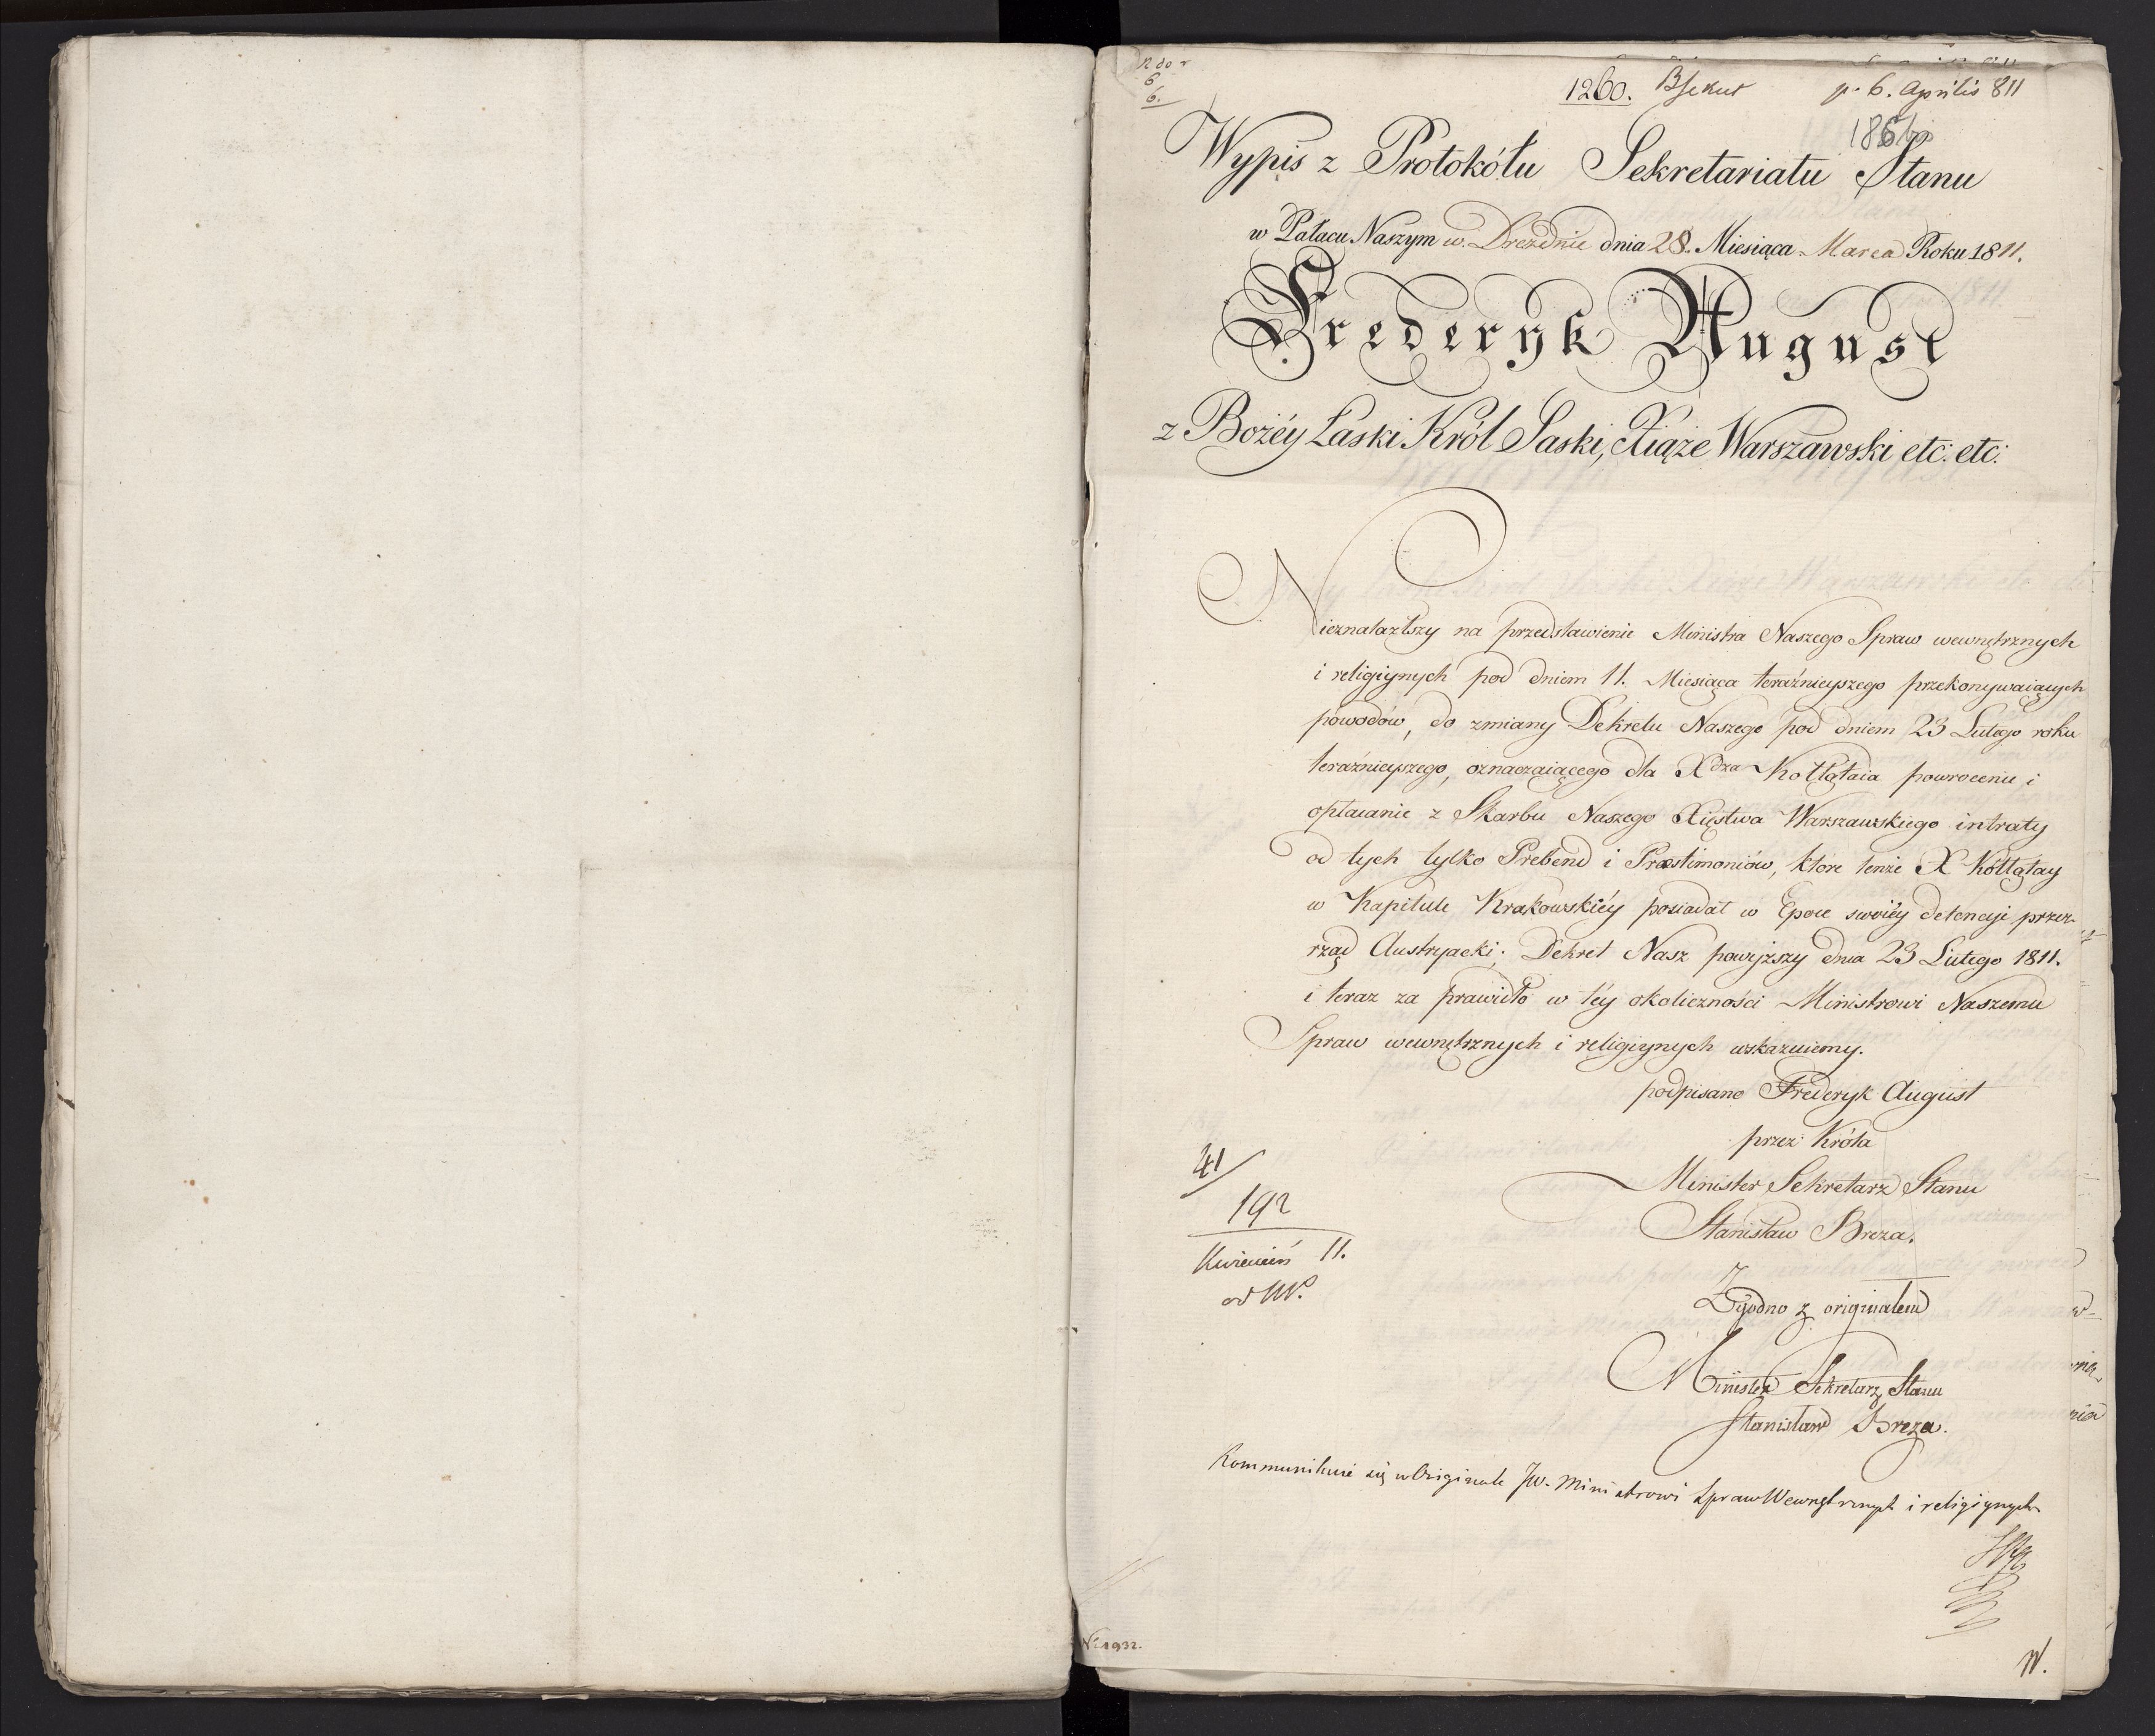 R do
6
6.
1260. p. 6. Aprilis 811
186
Wypis z Protokółu Sekretariatu Stanu
w Pałacu Naszym w Dreźdnie dnia 28. Miesiąca Marca Roku 1811.
Frederyk August
z Bożéy Łaski Król Saski, Xiąże Warszawski etc: etc:
Nieznalazłszy na przedstawienie Ministra Naszego Spraw wewnętrznych
i religiynych pod dniem 11. Miesiąca teraźnieyszego przekonywaiących
powodów, do zmiany Dekretu Naszego pod dniem 23 Lutego roku
teraźnieyszego, oznaczaiącego dla Xdza Kołłątaia powrocenie i
opłacanie z Skarbu Naszego Xięstwa Warszawskiego intraty
od tych tylko Prebend i Præstimoniów, które tenże X Kołłątay
w Kapitule Krakowskiéy posiadał w Epoce swoiéy detencyi przez
rząd Austryacki; Dekret Nasz powyższy dnia 23 Lutego 1811.
i teraz za prawidło w téy okoliczności Ministrowi Naszemu
Spraw wewnętrznych i religiynych wskazuiemy.
podpisano Frederyk August
przez Króla
Minister Sekretarz Stanu
Stanisław Breza.
41
192
Kwiecień 11.
od
Zgodno z originałem
Minister Sekretarz Stanu
Stanisław Breza.
Kommunikuie się w Originale JW. Ministrowi Spraw Wewnętrznych i religiynych
N 1932.
W.